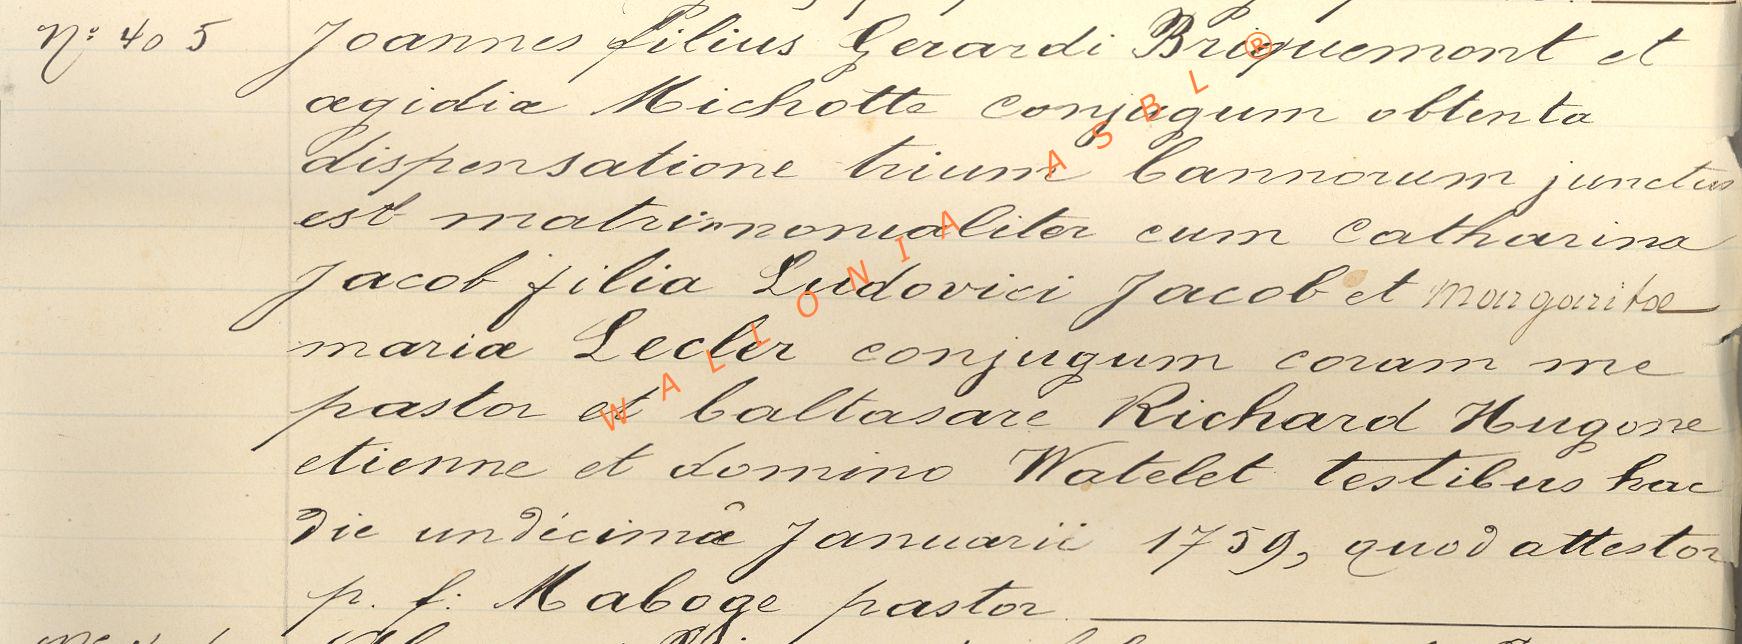 Nº 405 Joannes filius Gerardi Briquemont et
ægidiæ Michotte conjugum obtenta
dispensatione trium bannorum junctus
est matrimonialiter cum Catharina
Jacob filia Ludovici Jacob et Margaritæ
mariæ Lecler conjugum coram me
pastor et baltasare Richard Hugone
etienne et domino Watelet testibus hac
die undécimâ Januarii 1759, quod attestor
p. f: Maboge pastor
WALLONIA ASBL ®